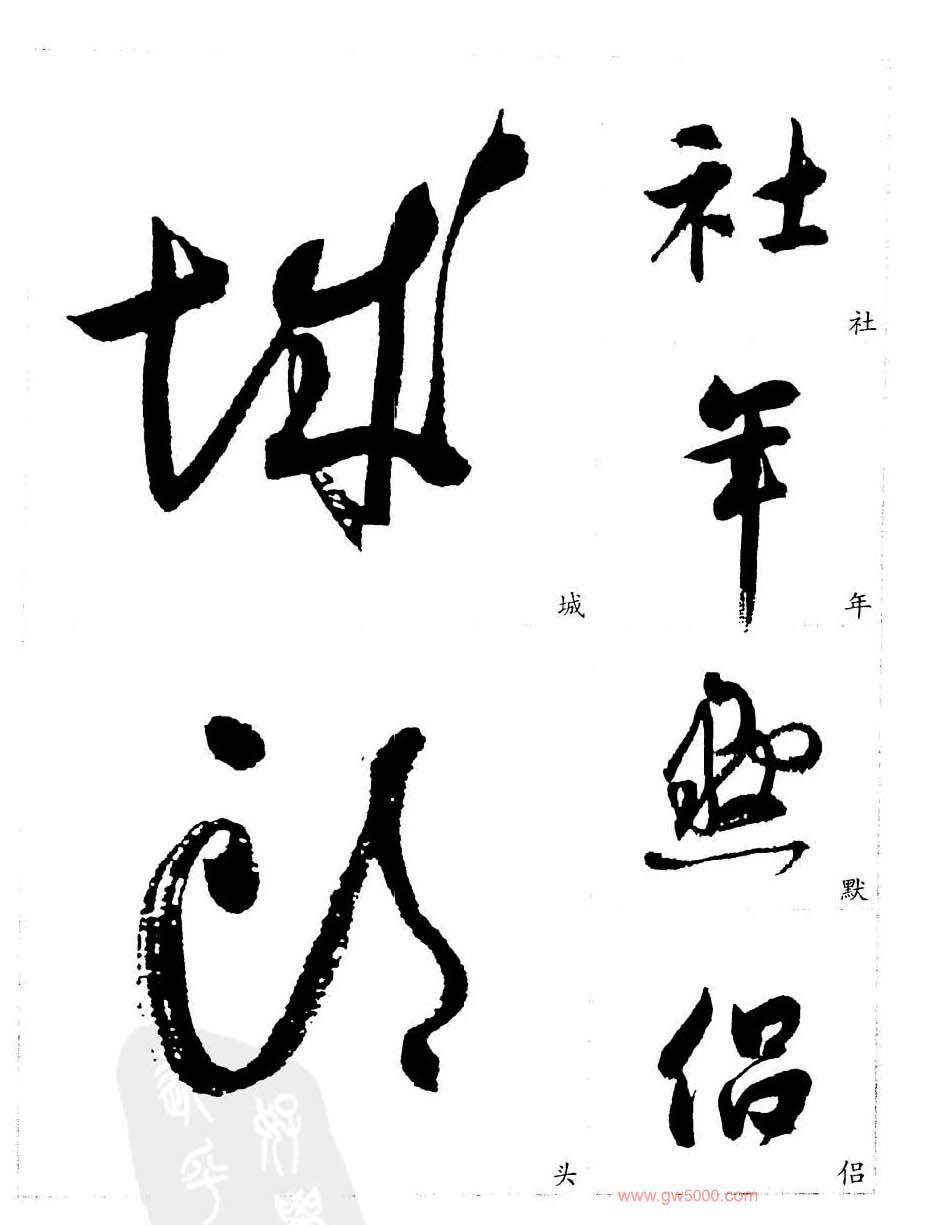 社
社
年
年
默
默
侣
侣
城
城
头
头
www.gw5000.com